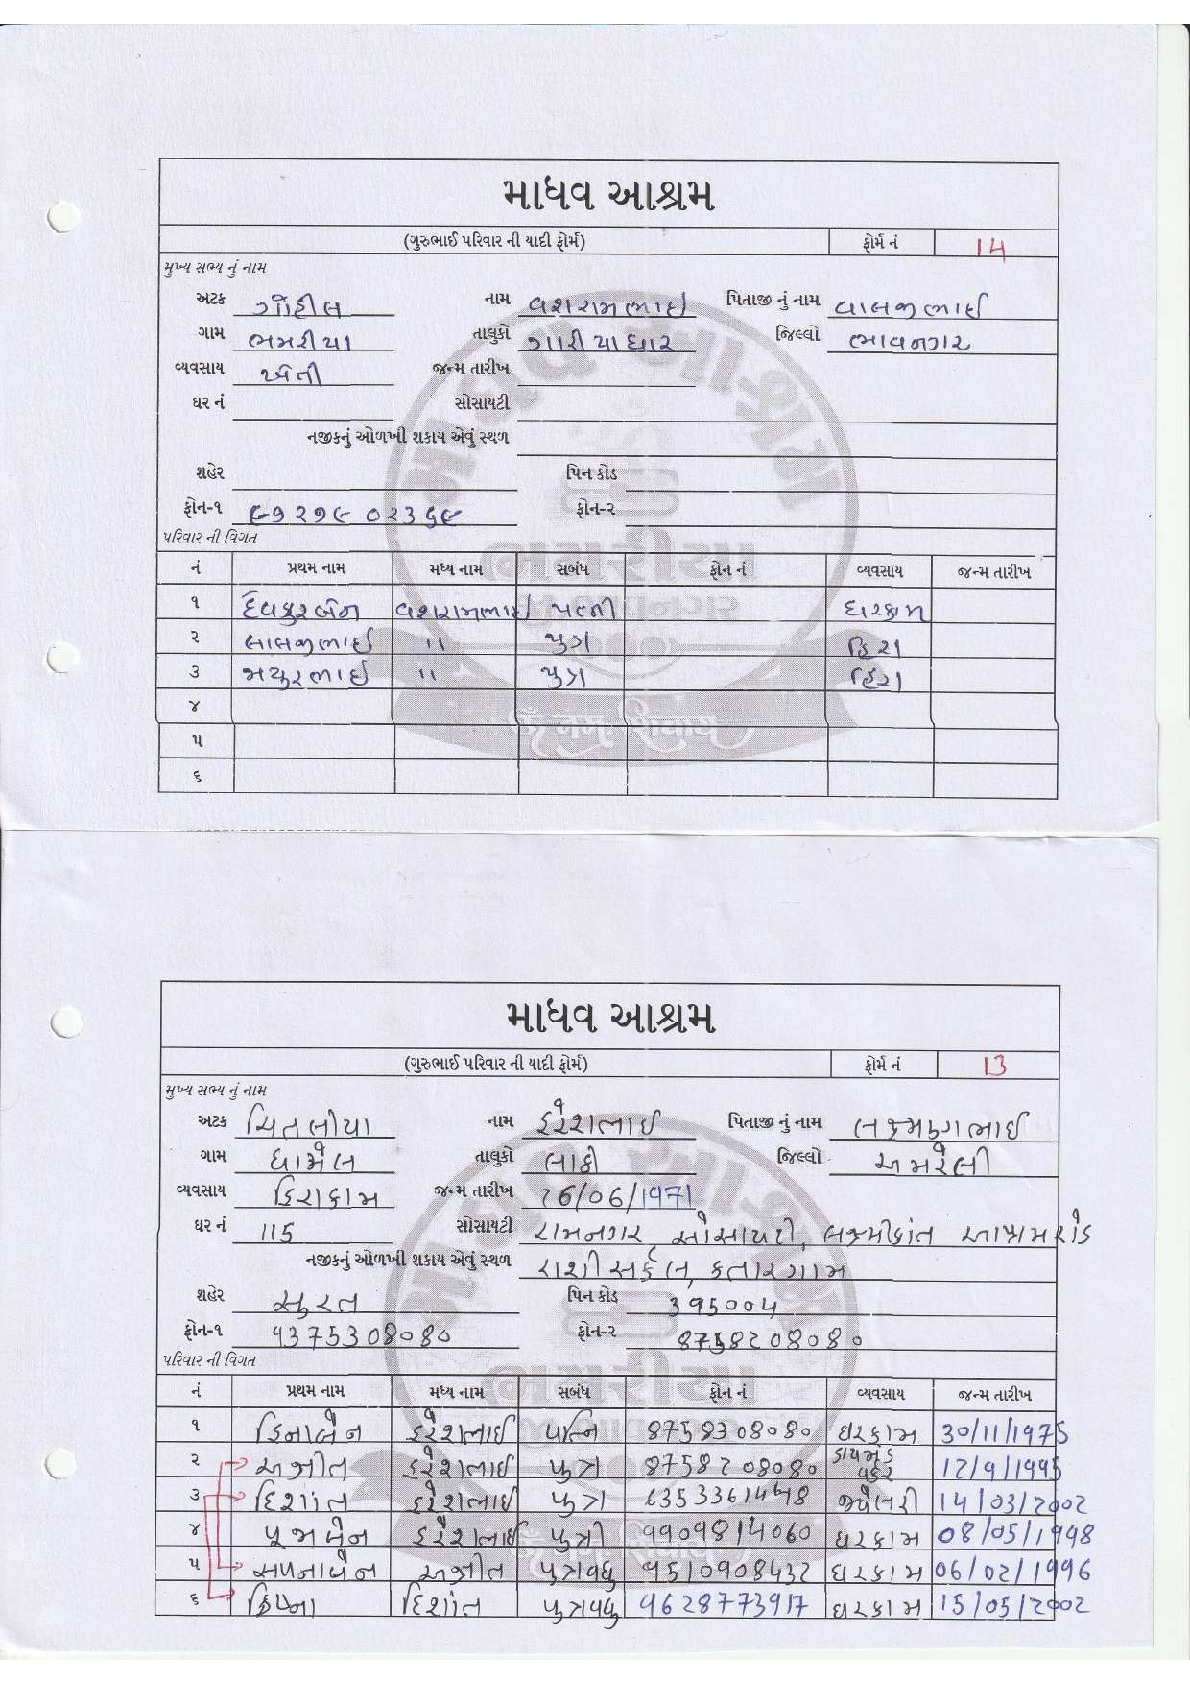 માધવ આશ્રમ
(ગુરુભાઈ પરિવાર ની યાદી ફોર્મ) ફોર્મ નં 14
મુખ્ય સભ્ય નું નામ
અટક ગોહીલ નામ વશરામભાઈ પિતાજી નું નામ વાલજીભાઈ
ગામ ભમરીયા તાલુકો ગારીયાધાર જિલ્લો ભાવનગર
વ્યવસાય ખેતી જન્મ તારીખ
ઘર નં સોસાયટી
નજીકનું ઓળખી શકાય એવું સ્થળ
શહેર પિન કોડ
ફોન-૧ ૯૭૨૭૯૦૨૩૬૯ ફોન-૨
પરિવાર ની વિગત
નં પ્રથમ નામ મધ્ય નામ સબંધ ફોન નં વ્યવસાય જન્મ તારીખ
૧ દેવકુરબેન વશરામભાઈ પત્ની ઘરકામ
૨ લાલજીભાઈ " પુત્ર હિરા
૩ મયુરભાઈ " પુત્ર હિરા
૪
૫
૬
માધવ આશ્રમ
(ગુરુભાઈ પરિવાર ની યાદી ફોર્મ) ફોર્મ નં 13
મુખ્ય સભ્ય નું નામ
અટક ચિતલીયા નામ હરેશભાઈ પિતાજી નું નામ લક્ષ્મણભાઈ
ગામ ધામેલ તાલુકો લાઠી જિલ્લો અમરેલી
વ્યવસાય હિરાકામ જન્મ તારીખ 26/06/1971
ઘર નં 115 સોસાયટી રામનગર સોસાયટી, લક્ષ્મીકાંત આશ્રમ રોડ
નજીકનું ઓળખી શકાય એવું સ્થળ રાશી સર્કલ, કતારગામ
શહેર સુરત પિન કોડ 395004
ફોન-૧ 9375308080 ફોન-૨ 8758208080
પરિવાર ની વિગત
નં પ્રથમ નામ મધ્ય નામ સબંધ ફોન નં વ્યવસાય જન્મ તારીખ
૧ હિનાબેન હરેશભાઈ પત્નિ 8758308080 ઘરકામ 30/11/1975
૨ અજીત હરેશભાઈ પુત્ર 8758208080 ડાયમંડ 12/9/1995
૩ દિશાંત હરેશભાઈ પુત્ર જ્વેલરી 14/03/2002
૪ પૂજાબેન હરેશભાઈ પુત્રી 9909814060 ઘરકામ 08/05/1998
૫ સપનાબેન અજીત પુત્રવધુ 9510908432 ઘરકામ 06/02/1996
૬ ક્રિષ્ના દિશાંત પુત્રવધુ 9628773917 ઘરકામ 15/05/2002